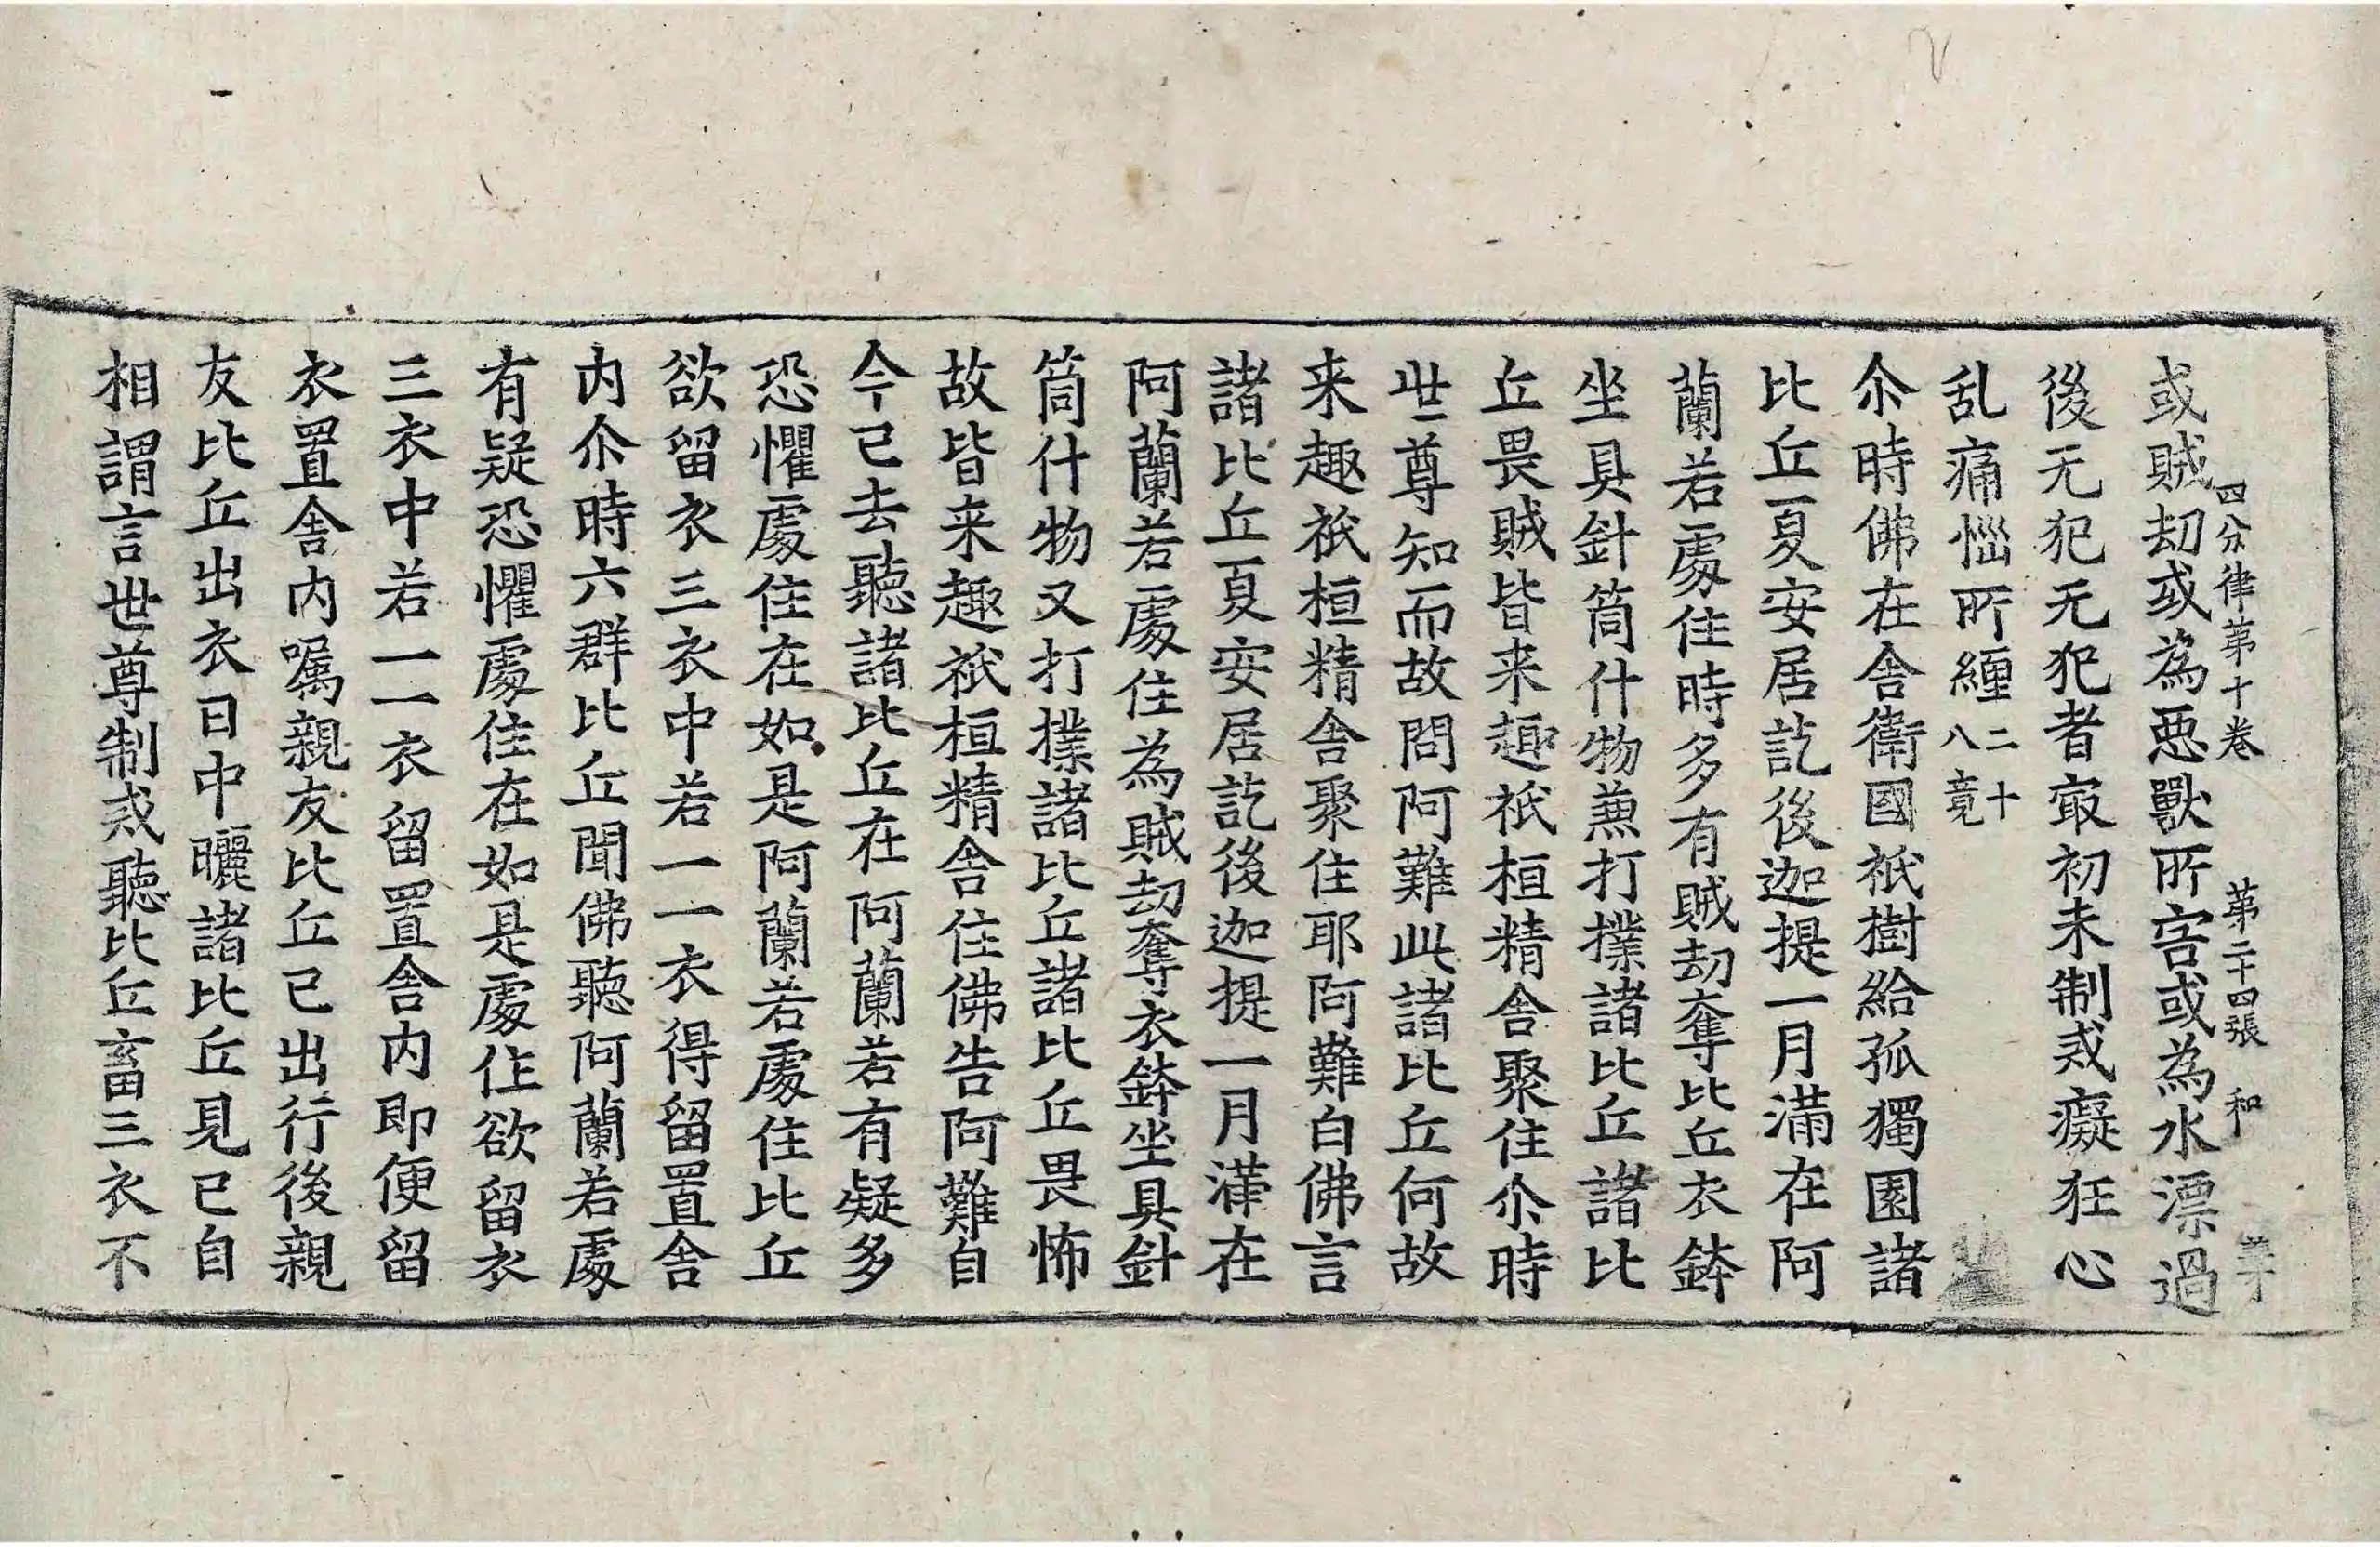 四分律第十卷　第二十四張　和
或賊劫或為惡獸所害或為水漂過
後无犯无犯者㝡初未制戒癡狂心
乱痛惱所纏二十八竟
尒時佛在舍衛國祇樹給孤獨園諸
比丘夏安居訖後迦提一月滿在阿
蘭若處住時多有賊劫奪比丘衣鉢
坐具針筒什物兼打撲諸比丘諸比
丘畏賊皆来趣祇桓精舍聚住尒時
世尊知而故問阿難此諸比丘何故
来趣祇桓精舍聚住耶阿難白佛言
諸比丘夏安居訖後迦提一月滿在
阿蘭若處住為賊劫奪衣鉢坐具針
筒什物又打撲諸比丘諸比丘畏怖
故皆来趣祇桓精舍住佛告阿難自
今已去聽諸比丘在阿蘭若有疑多
恐懼處住在如是阿蘭若處住比丘
欲留衣三衣中若一一衣得留置舍
内尒時六群比丘聞佛聽阿蘭若處
有疑恐懼處住在如是處住欲留衣
三衣中若一一衣留置舍内即便留
衣置舍内嘱親友比丘已出行後親
友比丘出衣日中曬諸比丘見已自
相謂言世尊制戒聽比丘畜三衣不